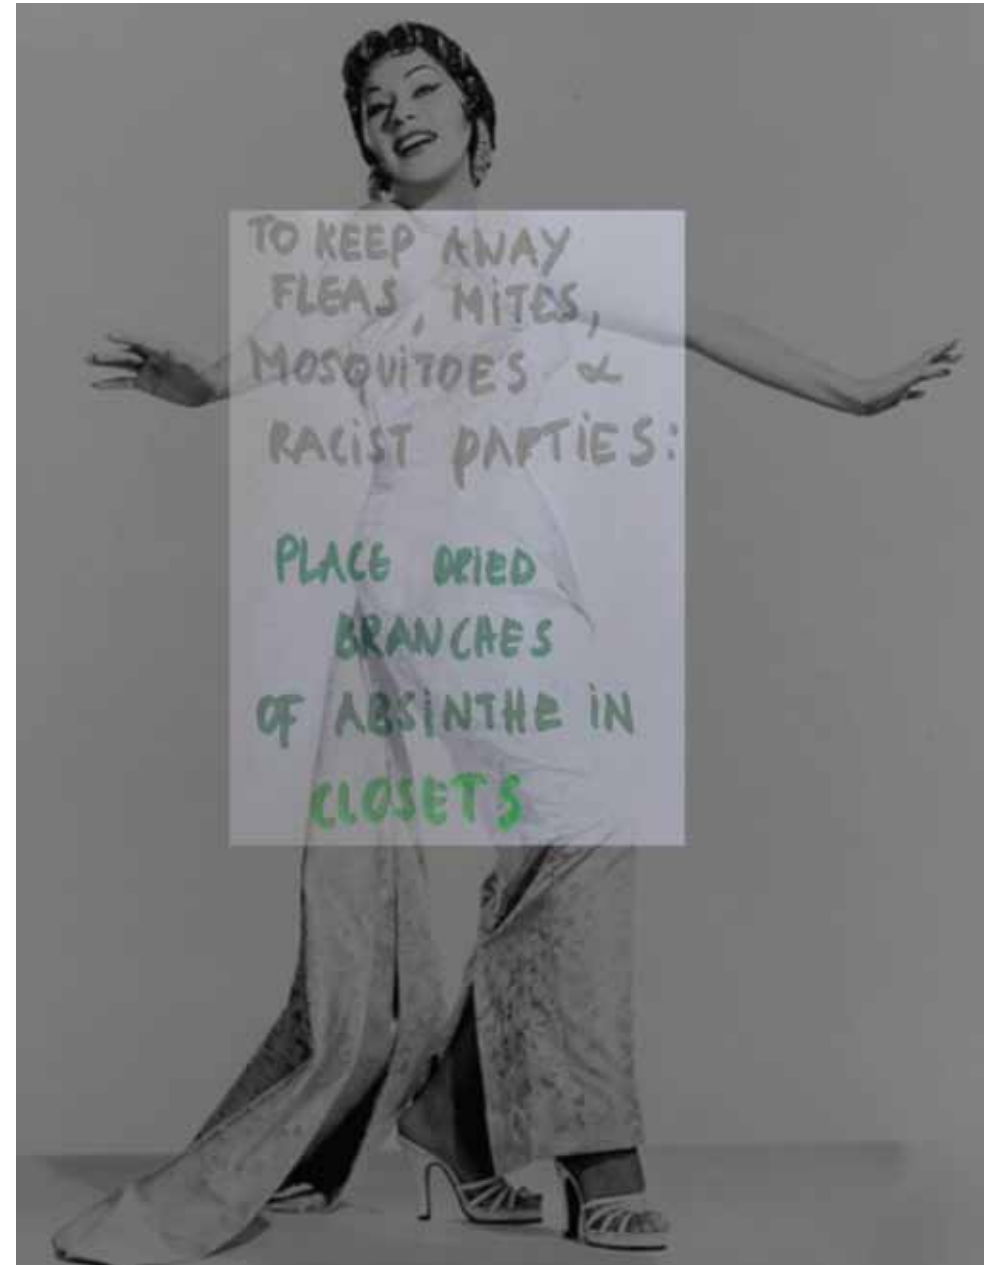 TO KEEP AWAY
FLEAS, MITES,
MOSQUITOES &
RACIST PARTIES:
PLACE DRIED
BRANCHES
OF ABSINTHE IN
CLOSETS